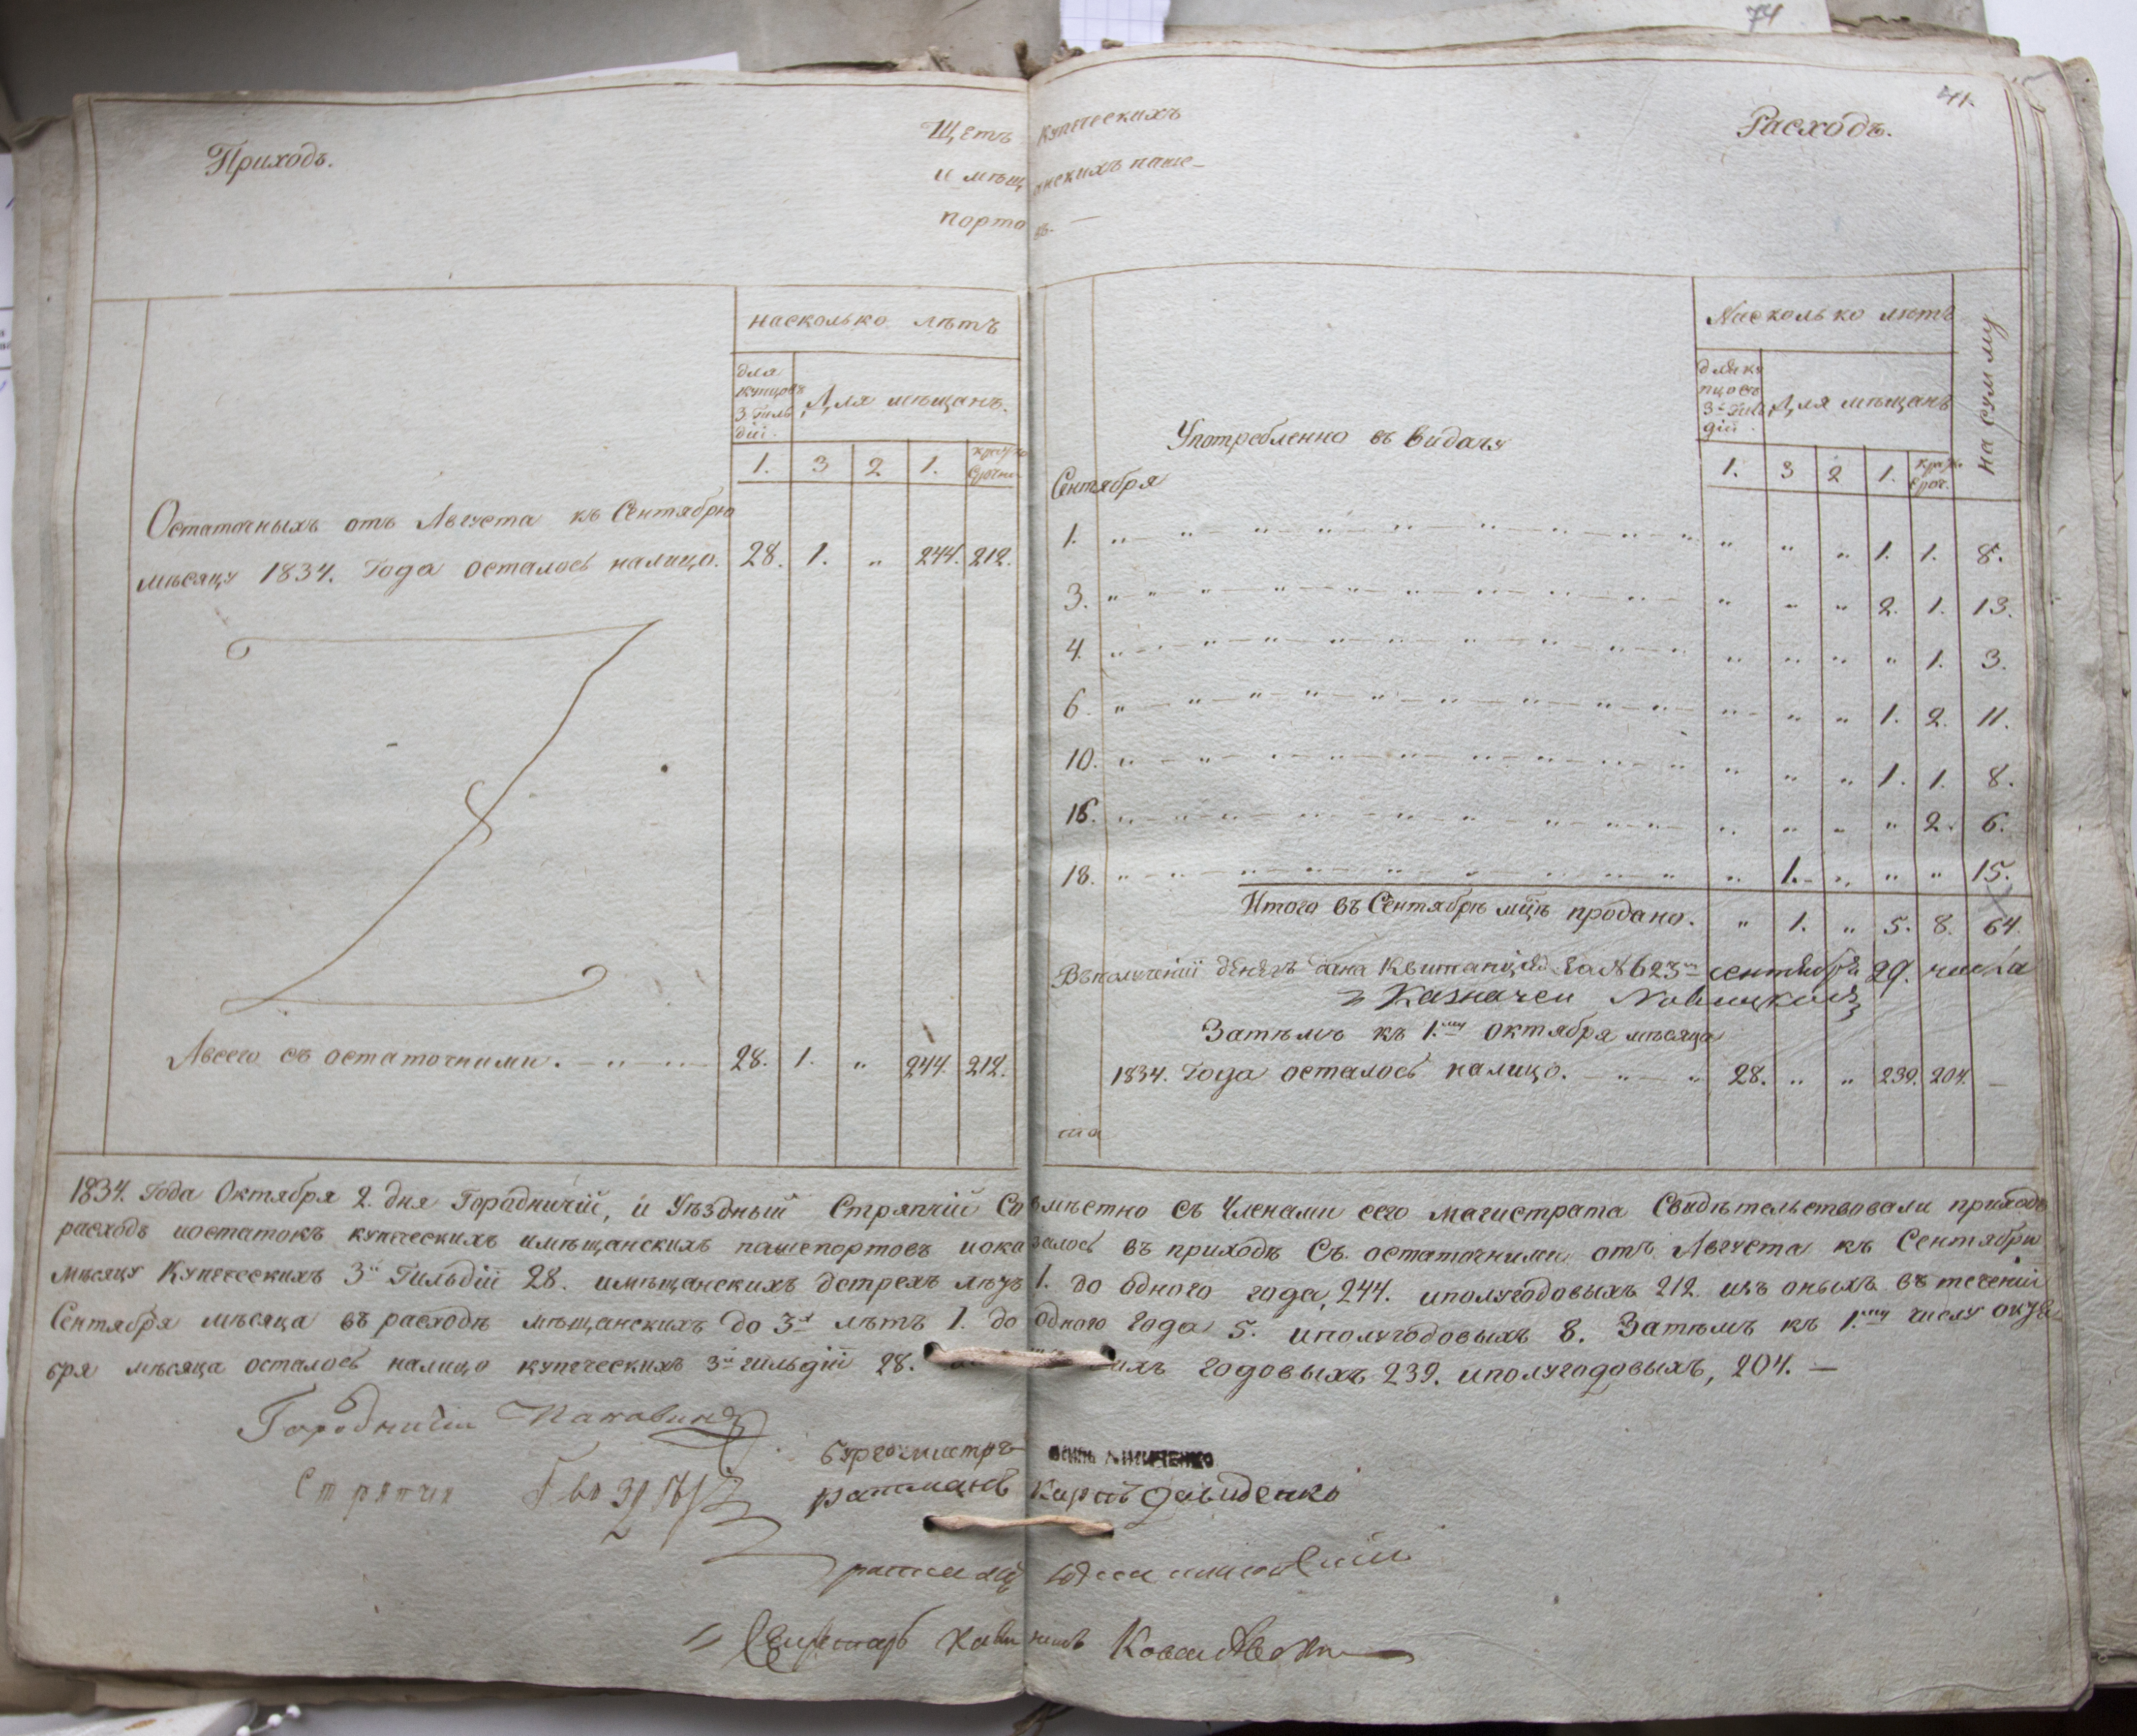 74
41.
Приходъ.
Щетъ купеческихъ
и мѣщанскихъ паше-
портовъ. —
Расходъ.
насколько лѣтъ
для купцовъ 3 гильдіи.
Для мѣщанъ.
1. 3 2 1. кратко срочн.
Остаточныхъ отъ Августа къ Сентябрю
мѣсяцу 1834. Года осталось налицо. 28. 1. „ 244. 212.
Авсего съ остаточними. — „ — 28. 1. „ 244. 212.
Насколько лѣтъ
на сумму
для купцовъ 3й гильдіи.
Для мѣщанъ
1. 3 2 1. крат. сроч.
Употребленно въ видачу
Сентября
1. „ „ „ 1. 1. 8.
3. „ „ „ 2. 1. 13.
4. „ „ „ „ 1. 3.
6. „ „ „ 1. 2. 11.
10. „ „ „ 1. 1. 8.
16. „ „ „ „ 2. 6.
18. „ 1. „ „ „ 15.
Итого въ Сентябрѣ мцѣ продано. „ 1. „ 5. 8. 64.
Въ полученіи денегъ дана Квитанція За № 623м сентября 29. числа
Казначей
Затѣмъ къ 1.му октября мѣсяца
1834. Года осталось налицо. — „ — „ 28. „ „ 239. 204. —
та
1834. Года Октября 2. дня Городничій, и Уѣздный Стряпчій Совмѣстно съ Членами сего магистрата Свидѣтельствовали приходъ
расходъ иостатокъ купеческихъ имѣщанскихъ пашепортовъ иоказалось въ приходѣ Съ остаточними отъ Августа къ Сентябрю
мѣсяцу Купеческихъ 3й Гильдіи 28. имѣщанскихъ дотрехъ лѣтъ 1. до одного года, 244. иполугодовыхъ 212. изъ оныхъ въ теченіи
Сентября мѣсяца въ расходѣ мѣщанскихъ до 3х лѣтъ 1. до одного Года 5. иполугодовыхъ 8. Затѣмъ къ 1.му числу октя-
бря мѣсяца осталось налицо купеческихъ 3й гильдіи 28. годовыхъ 239. иполугодовыхъ, 204. —
Городничій
бургомистръ
Стряпчій
ратманъ Карпъ Давиденко
ратманъ
Секретарь